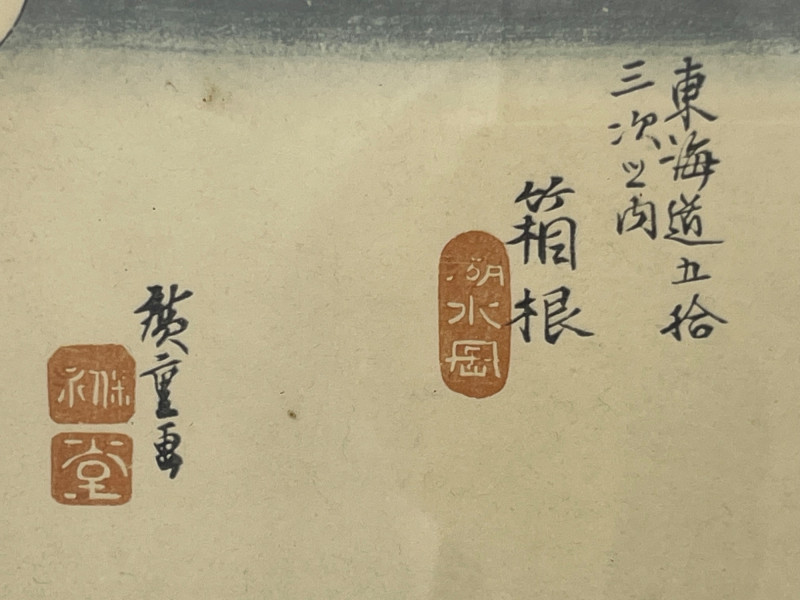 東海道五拾
三次之内
箱根
湖水図
廣重画
保永
堂